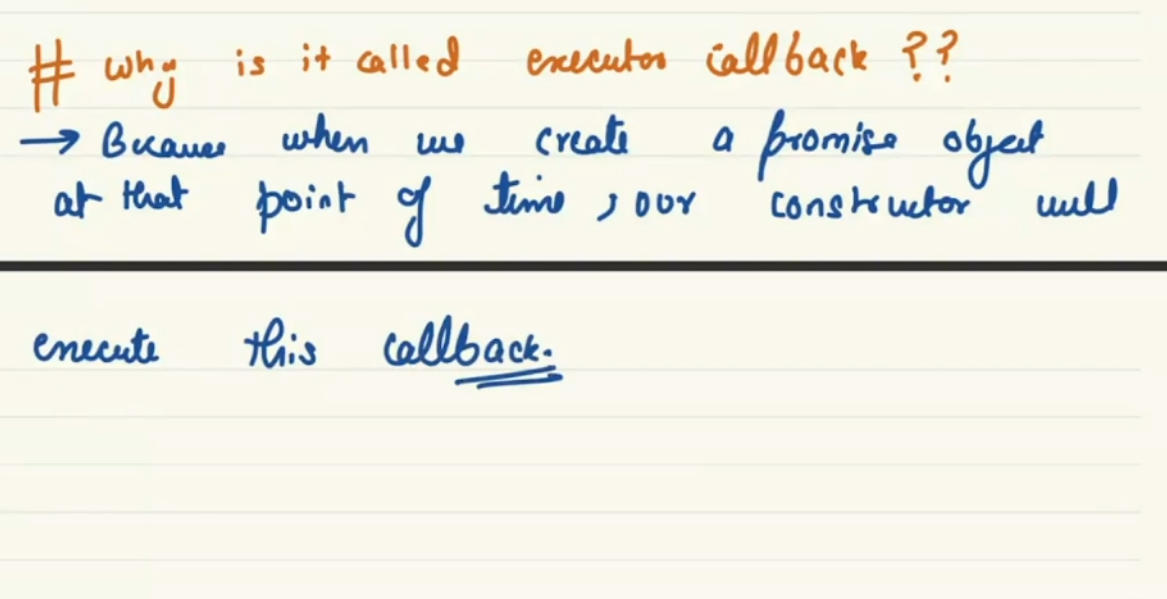 # why is it called executor callback ??
→ Because when we create a promise object
at that point of time, our constructor will
execute this callback.